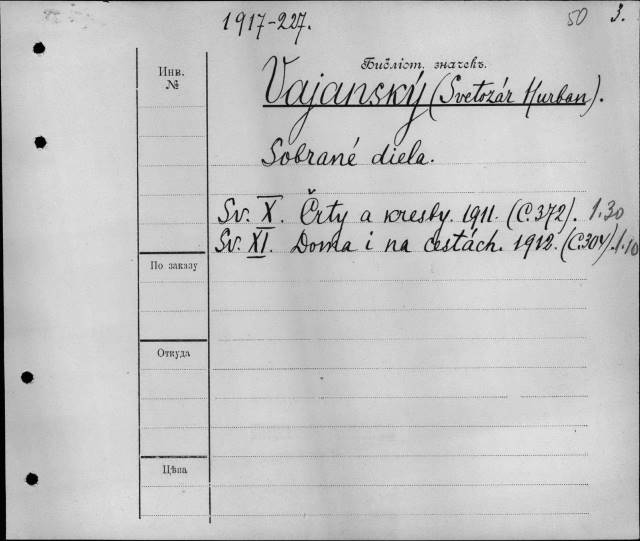 1917-227.
50 3.
Библіот. значекъ.
Инв.
№
Vajanský (Svetozár Hurban).
Sobrané diela.
Sv. X. Črty a kresby. 1911. (C. 372). 1.30
Sv. XI. Doma i na cestách. 1912. (C. 304). 1.10
По заказу
Откуда
Цѣна